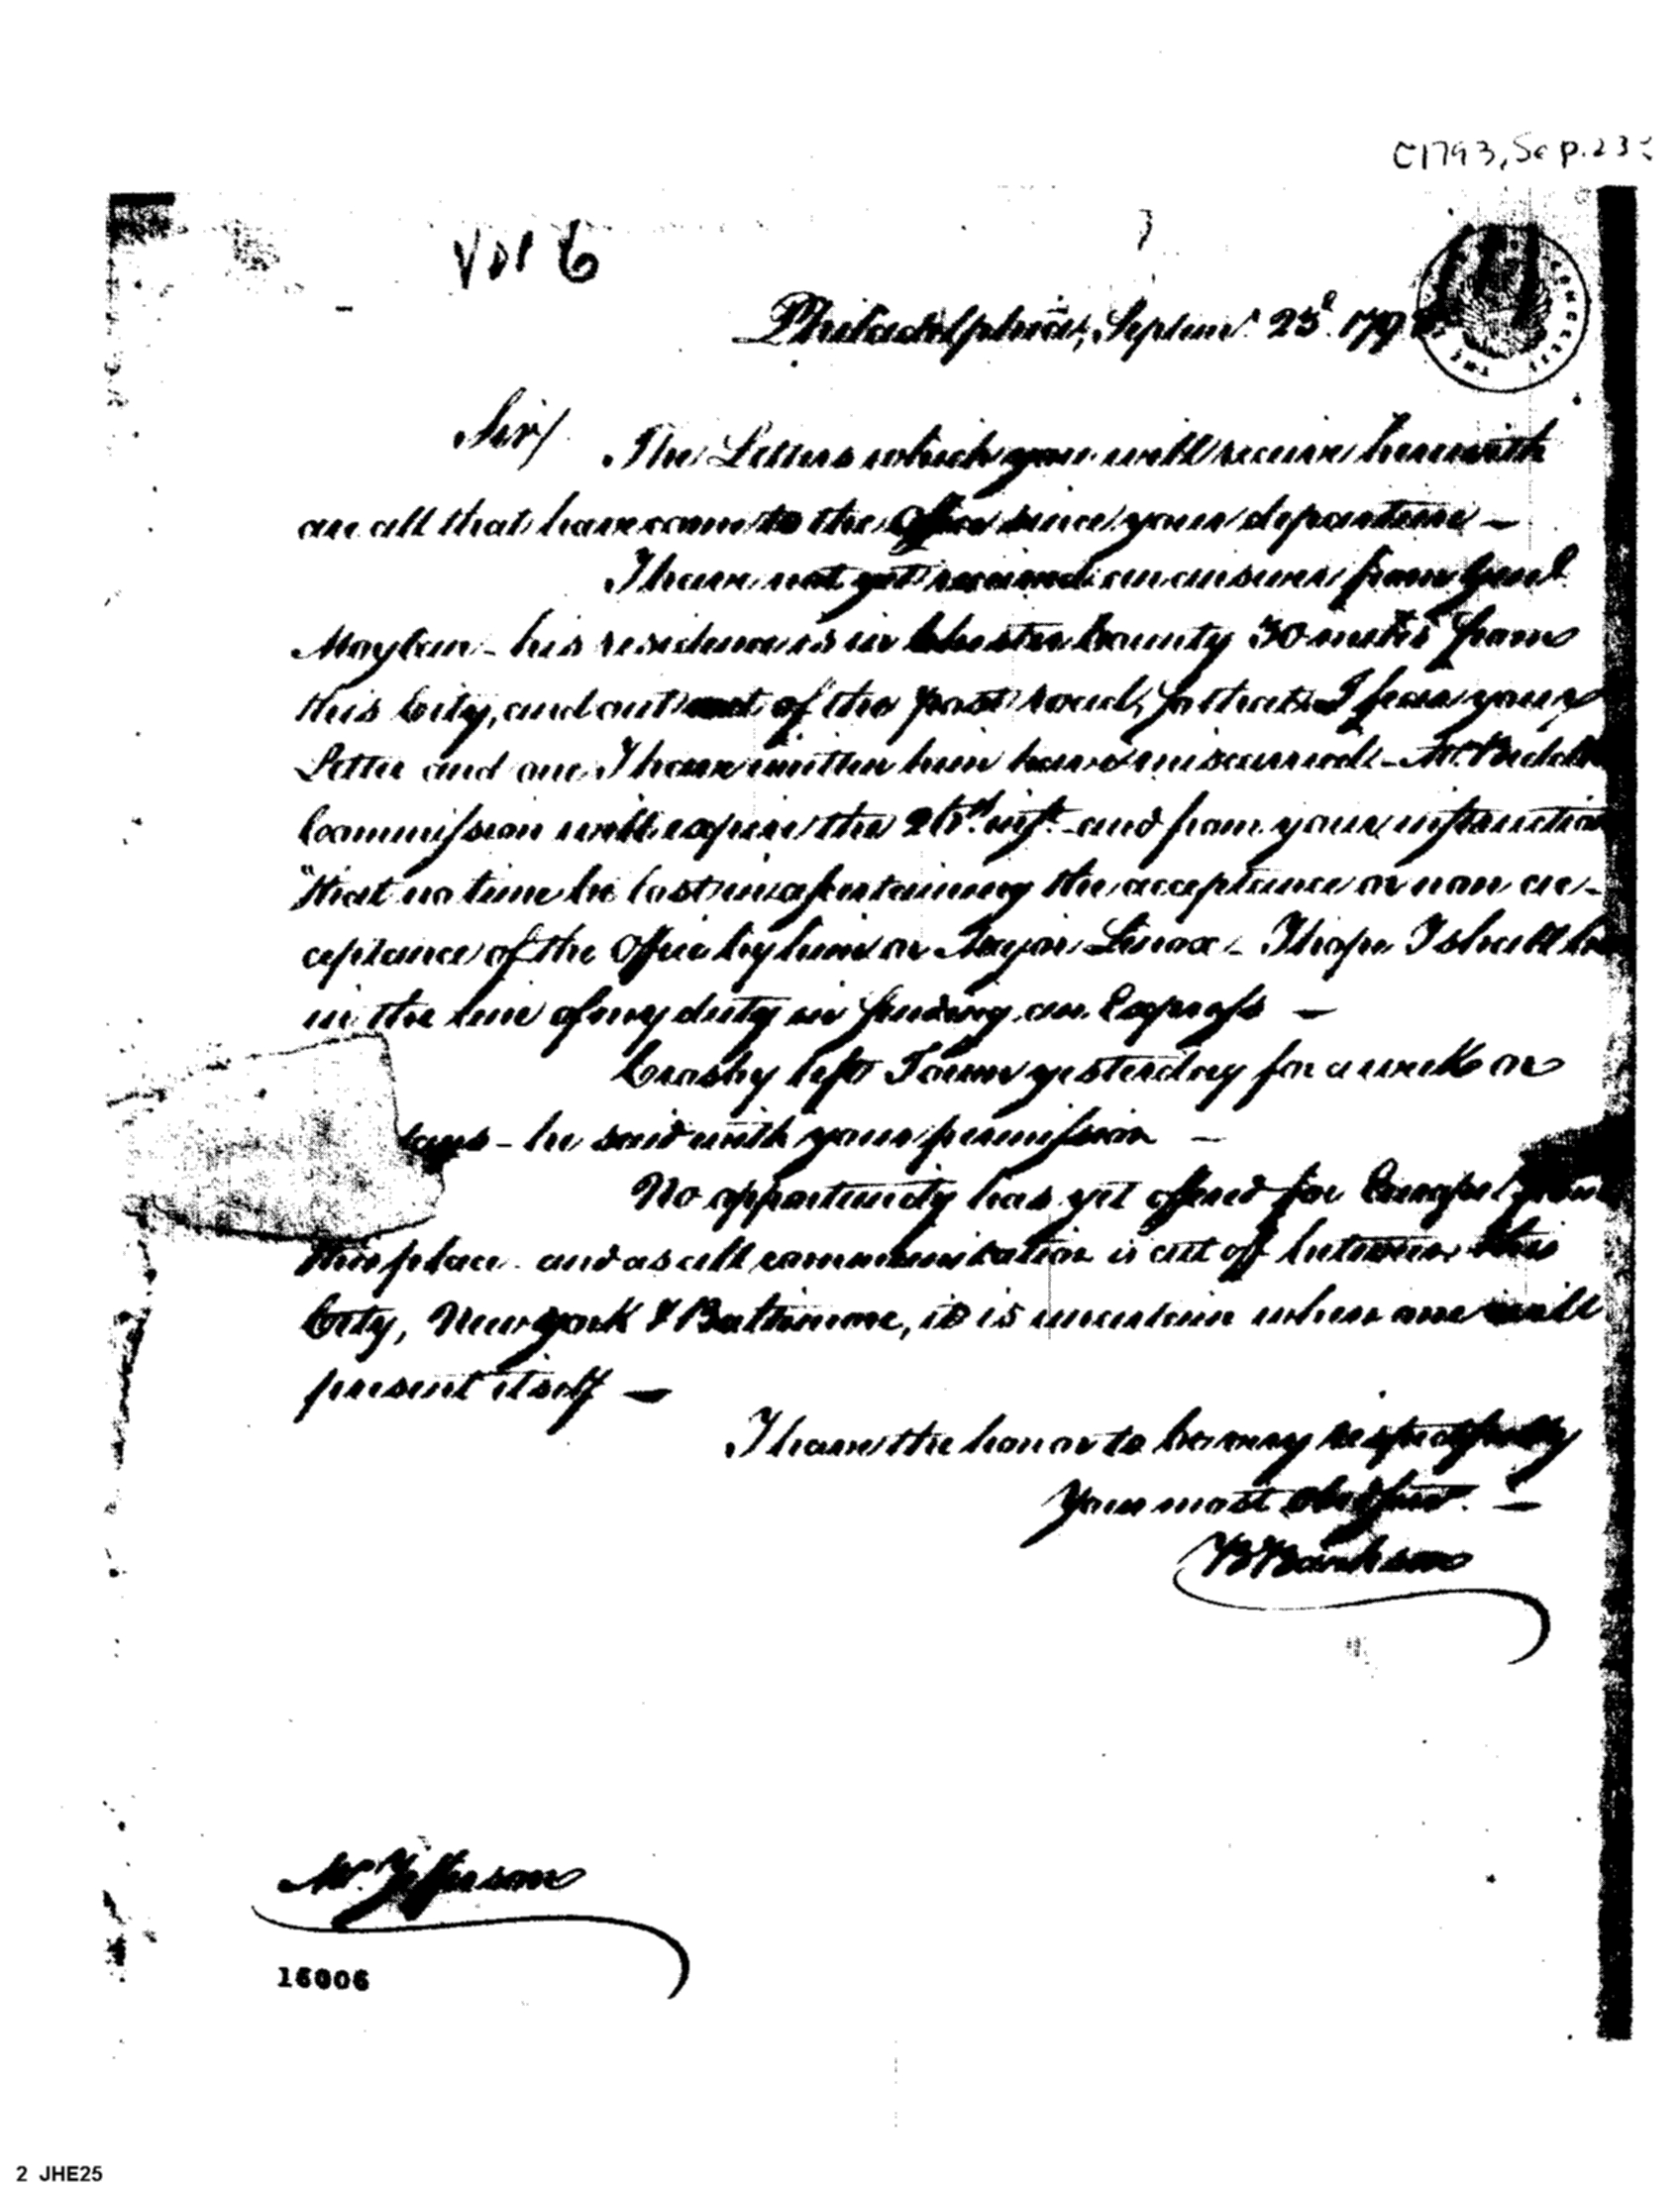 C1793, Sep. 23
Vol 6
Philadelphia, Septemr. 23d. 179
Sir/
The Letters which you will receive herewith
are all that have come to the Office since your departure —
I have not yet received an answer from Genl.
Moylan – his residence is in Chester County 30 miles from
this City, and out of the post road, so that I fear your
Letter and one I have written him have miscarried – Mr.
Commission will expire the 26th. inst. and from your instruction
"that no time be lost in ascertaining the acceptance or non ac-
ceptance of the Office by him or Major Lenox – I hope I shall be
in the line of my duty in sending an Express —
Crosby left Town yesterday for a week or
days – he said with your permission —
No opportunity has yet offered for Europe from
this place – and as all communication is cut off between this
City, New york & Baltimore, it is uncertain when one will
present itself —
I have the honor to be very respectfully
Your most obed. servt. —
B Bankson
Mr. Jefferson
16006
2 JHE25